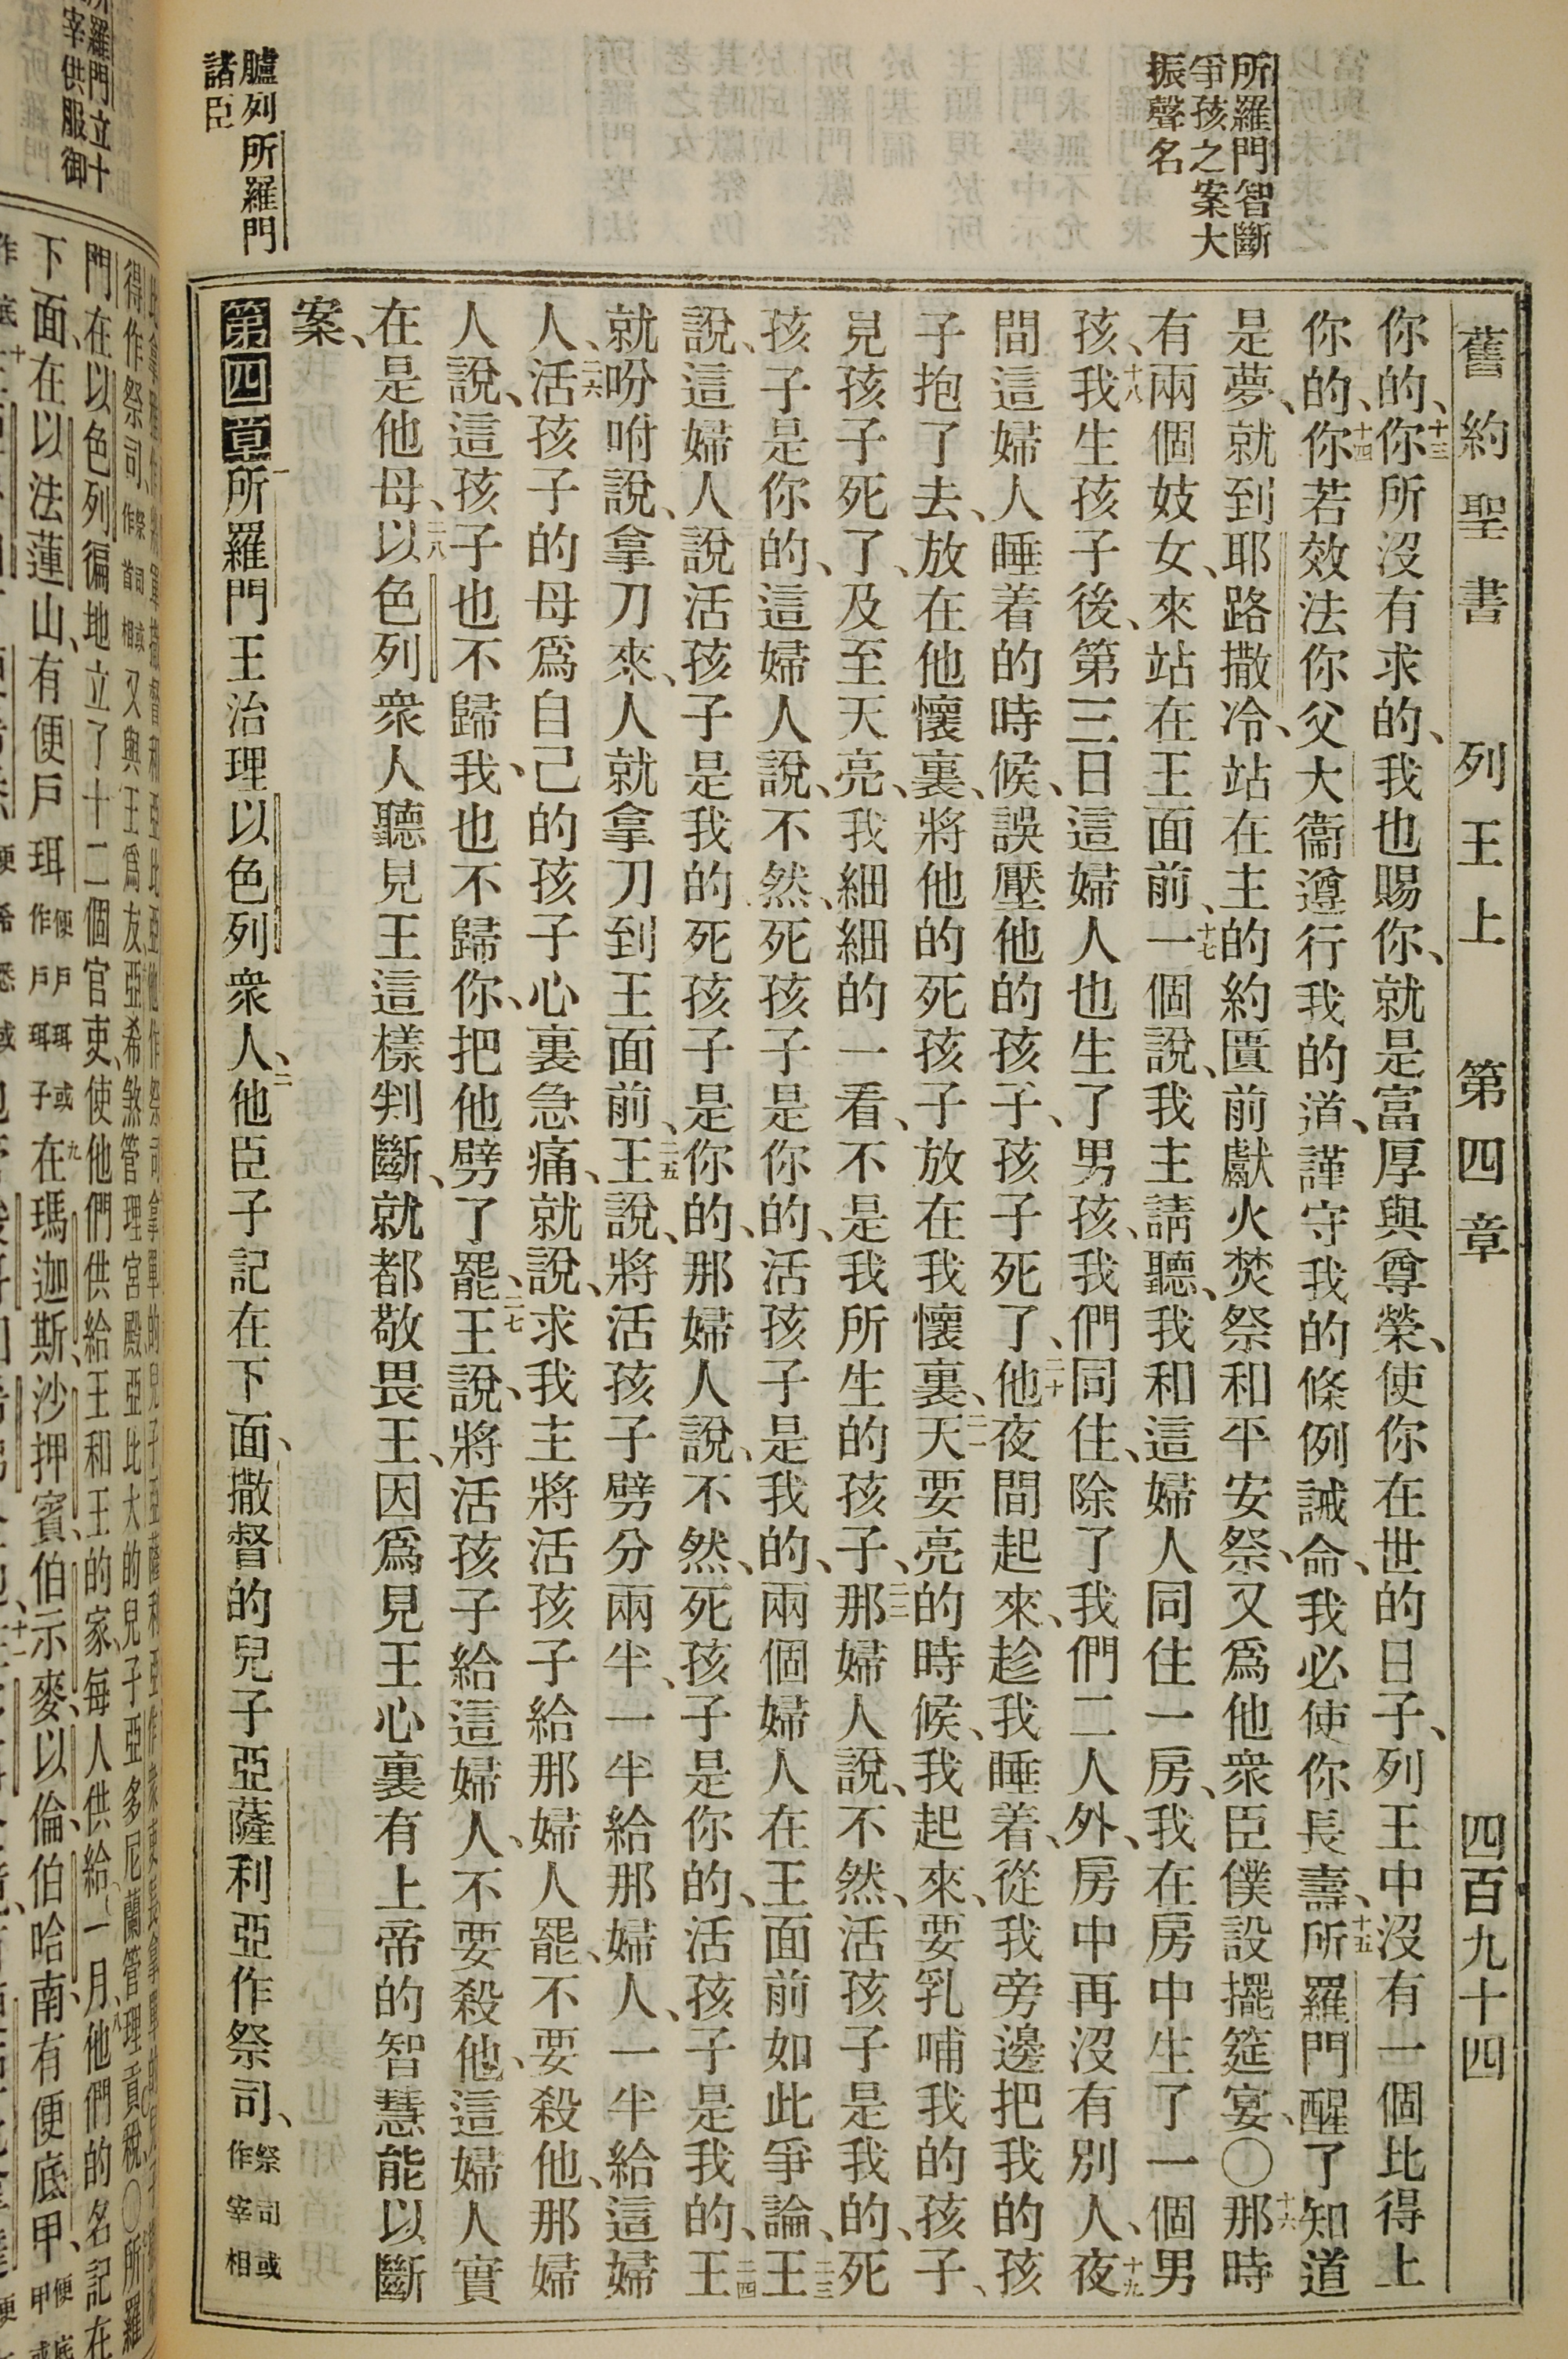 舊約聖書 列王上 第四章 四百九十四
所羅門智斷
爭孩之案大
振聲名
臚列所羅門
諸臣
你的、十三你所沒有求的、我也賜你、就是富厚與尊榮、使你在世的日子、列王中沒有一個比得上
你的、十四你若效法你父大衞遵行我的道、謹守我的條例誡命、我必使你長壽、十五所羅門醒了知道
是夢、就到耶路撒冷、站在主的約匱前獻火焚祭和平安祭、又爲他衆臣僕設擺筵宴、〇十六那時
有兩個妓女、來站在王面前、十七一個說、我主請聽、我和這婦人同住一房、我在房中生了一個男
孩、十八我生孩子後、第三日這婦人也生了男孩、我們同住、除了我們二人外、房中再沒有別人、十九夜
間這婦人睡着的時候、誤壓他的孩子、孩子死了、二十他夜間起來、趁我睡着、從我旁邊把我的孩
子抱了去、放在他懷裏、將他的死孩子放在我懷裏、二一天要亮的時候、我起來、要乳哺我的孩子、
見孩子死了、及至天亮、我細細的一看、不是我所生的孩子、二二那婦人說、不然、活孩子是我的、死
孩子是你的、這婦人說、不然、死孩子是你的、活孩子是我的、兩個婦人在王面前如此爭論、二三王
說、這婦人說活孩子是我的死孩子是你的、那婦人說、不然、死孩子是你的、活孩子是我的、二四王
就吩咐說、拿刀來、人就拿刀到王面前、二五王說、將活孩子劈分兩半、一半給那婦人、一半給這婦
人、二六活孩子的母爲自己的孩子心裏急痛、就說、求我主將活孩子給那婦人罷、不要殺他、那婦
人說、這孩子也不歸我、也不歸你、把他劈了罷、二七王說、將活孩子給這婦人、不要殺他、這婦人實
在是他母、二八以色列衆人聽見王這樣判斷、就都敬畏王、因爲見王心裏有上帝的智慧能以斷
案、
第四章一所羅門王治理以色列衆人、二他臣子記在下面、撒督的兒子亞薩利亞作祭司、祭司或作宰相
所羅門立十
宰供服御
得作祭司、祭司或作首相又與王爲友、亞希煞管理宮殿亞比大的兒子亞多尼蘭管理貢稅、〇所羅
門在以色列徧地立了十二個官吏、使他們供給王和王的家、每人供給一月、八他們的名記在
下面、在以法蓮山、有便戶珥便戶珥或作戶珥子九在瑪迦斯、沙押賓、伯示麥、以倫、伯哈南、有便底甲、